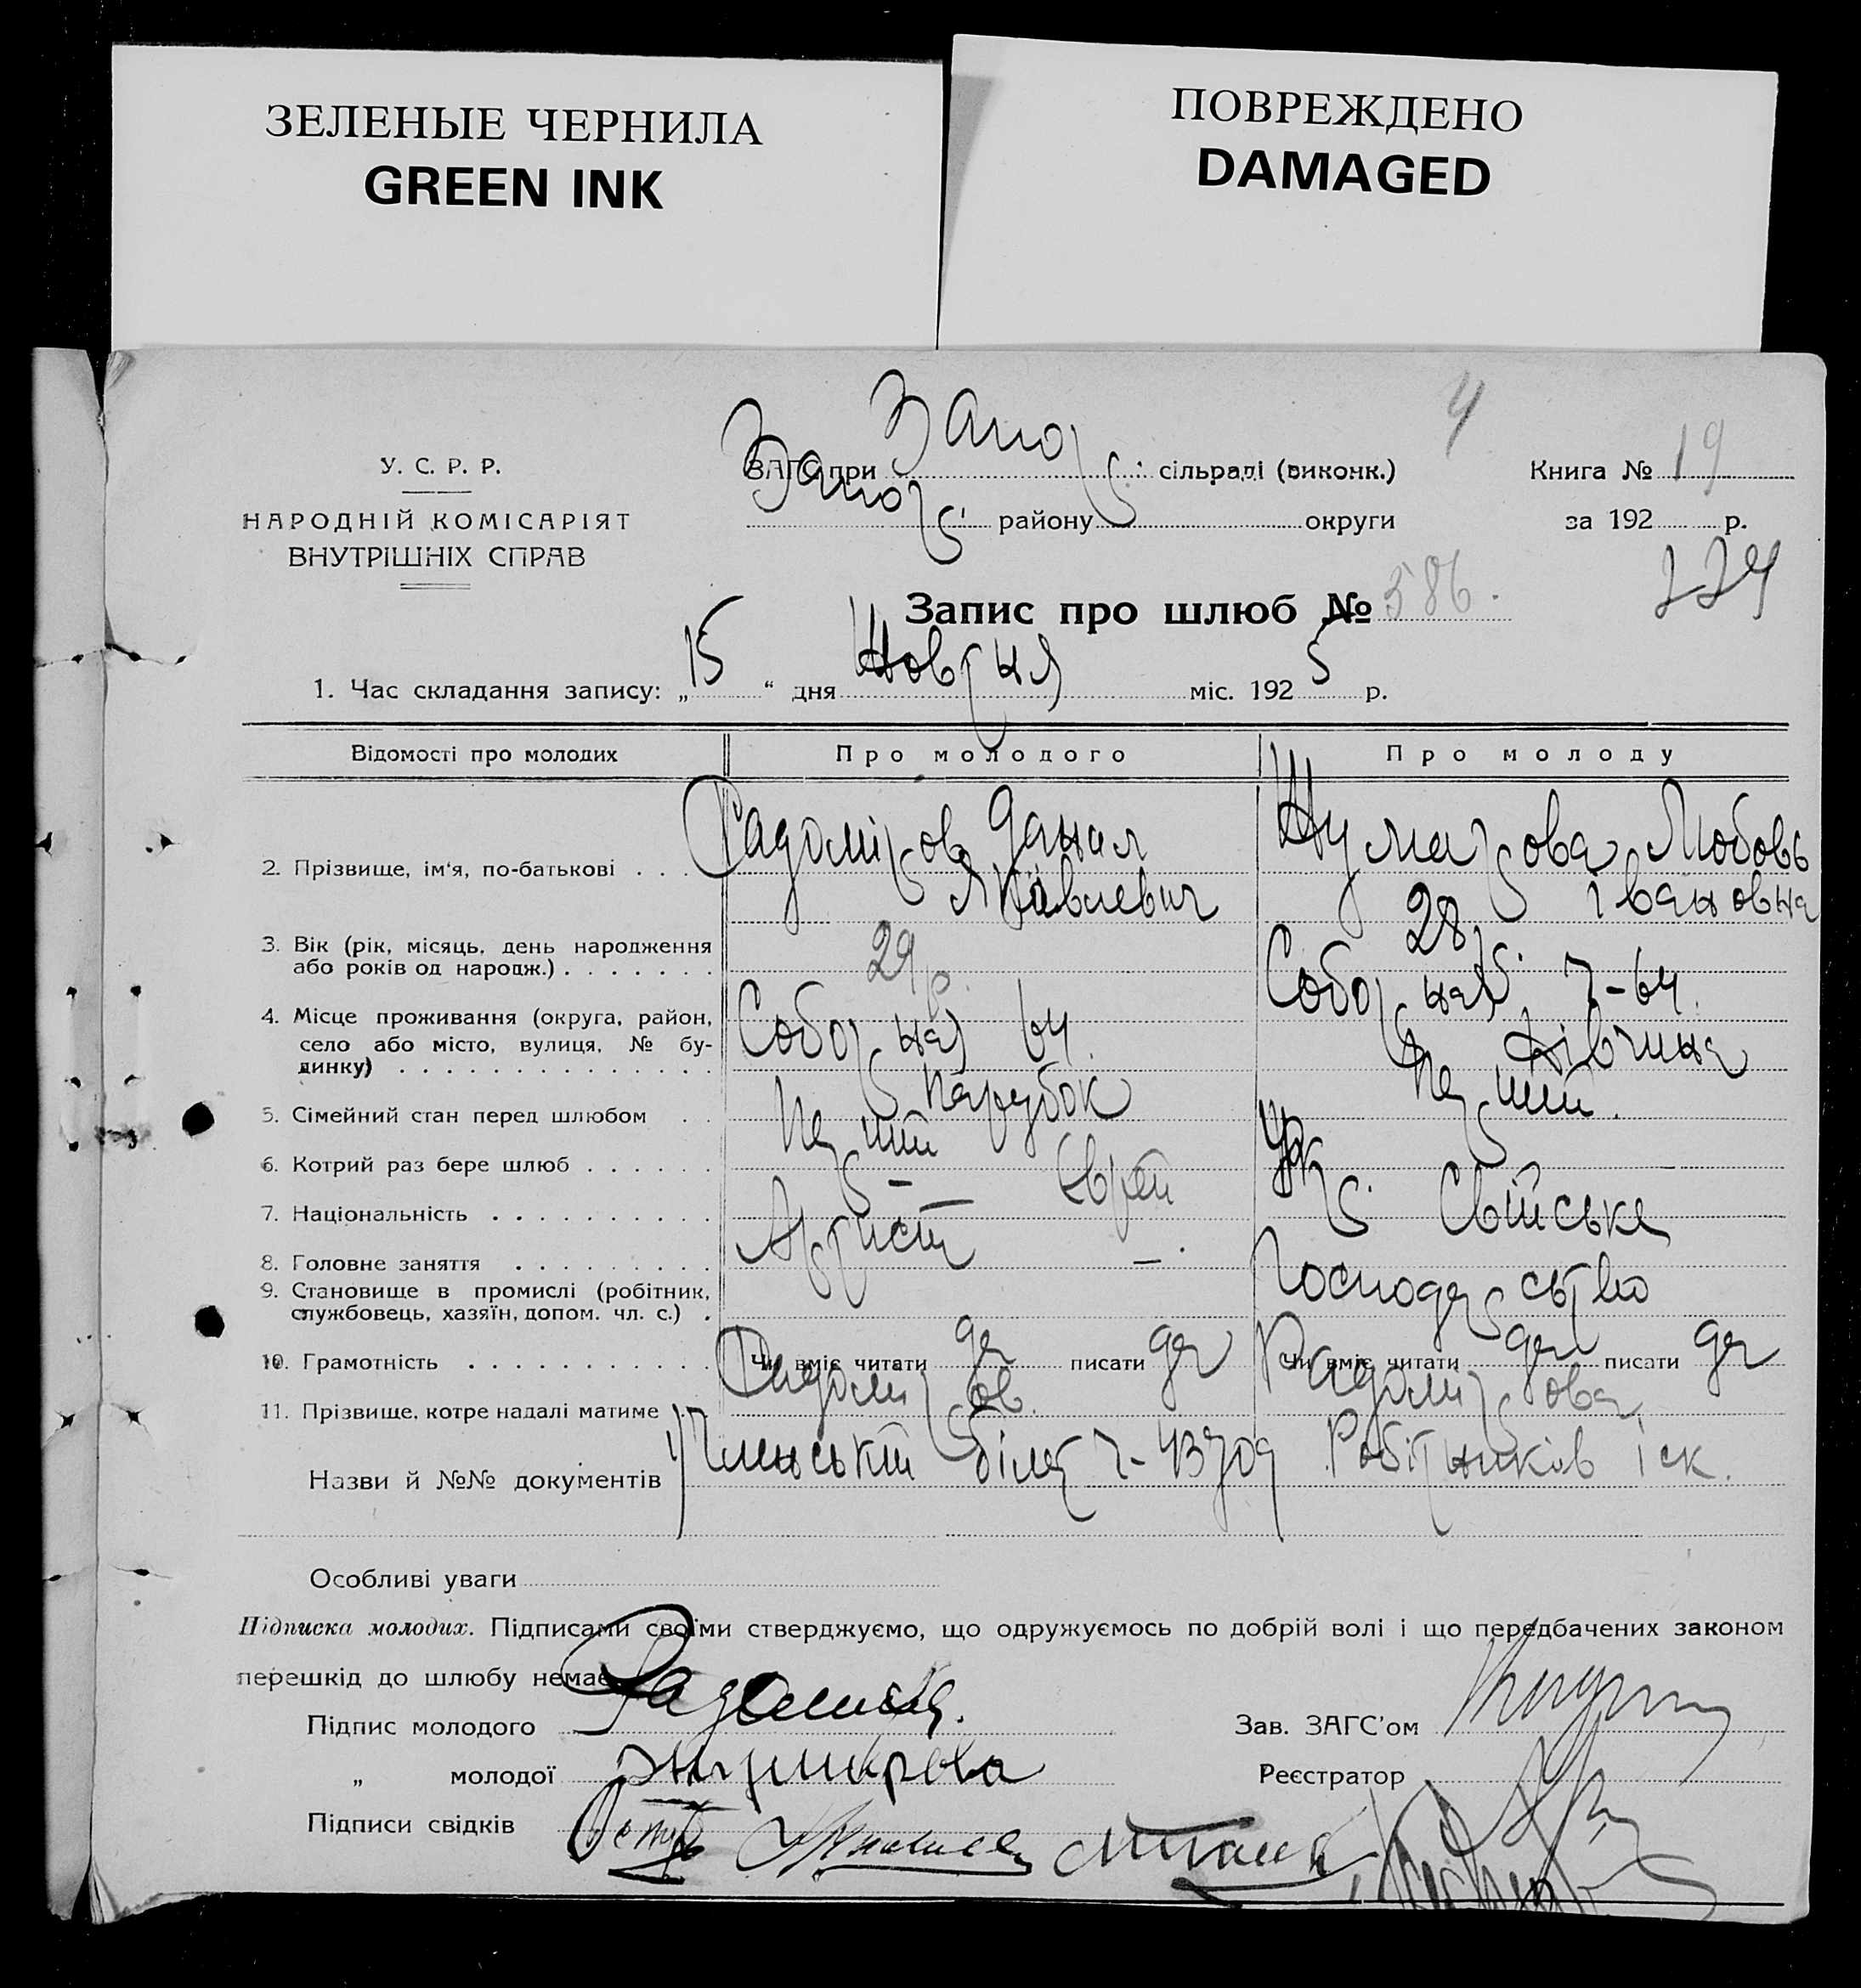 ЗЕЛЕНЫЕ ЧЕРНИЛА
GREEN INK
ПОВРЕЖДЕНО
DAMAGED
4
У. С. Р. Р.
НАРОДНІЙ КОМІСАРІЯТ
ВНУТРІШНІХ СПРАВ
ЗАГС при Запор. сільраді (виконк.)
Запор. району округи
Книга № 19
за 192 р.
224
Запис про шлюб № 586.
1. Час складання запису: „15“ дня Жовтня міс. 1925 р.
Відомості про молодих Про молодого Про молоду
2. Прізвище, ім'я, по-батькові . . . Радоміров Данил Яковлевич Жумарова Любовь Івановна
3. Вік (рік, місяць, день народження або років од народж.) . . . . . . . 29 р. 28 р.
4. Місце проживання (округа, район, село або місто, вулиця, № будинку) . . . . . . . . . . . . . Соборная 64. Соборная 7-64.
5. Сімейний стан перед шлюбом . . Парубок Дівчина
6. Котрий раз бере шлюб . . . . . . Перший Перший.
7. Національність . . . . . . . . . . — Єврей Укр.
8. Головне заняття . . . . . . . . . Артист —. Свійське
9. Становище в промислі (робітник, службовець, хазяїн, допом. чл. с.) . Господарство
10. Грамотність . . . . . . . . . . . Чи вміє читати да писати да Чи вміє читати да писати да
11. Прізвище, котре надалі матиме . . Радоміров. Радомірова
Назви й №№ документів Членський білет 7-43709 Робітників Іск.
Особливі уваги
Підписка молодих. Підписами своїми стверджуємо, що одружуємось по добрій волі і що передбачених законом
перешкід до шлюбу немає
Підпис молодого
Зав. ЗАГС'ом
„ молодої Жумарова
Реєстратор
Підписи свідків